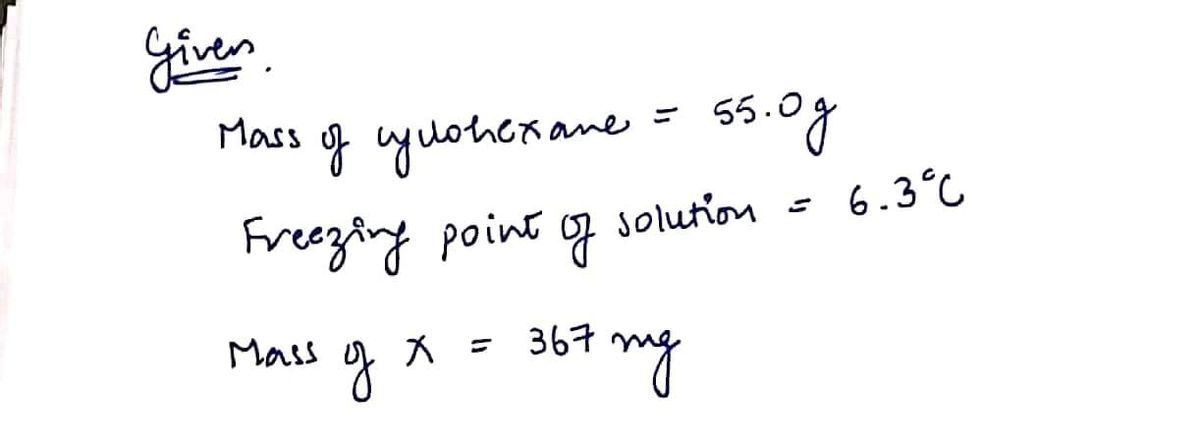 Given.
Mass of cyclohexane = 55.0g
Freezing point of solution = 6.3°C
Mass of X = 367 mg